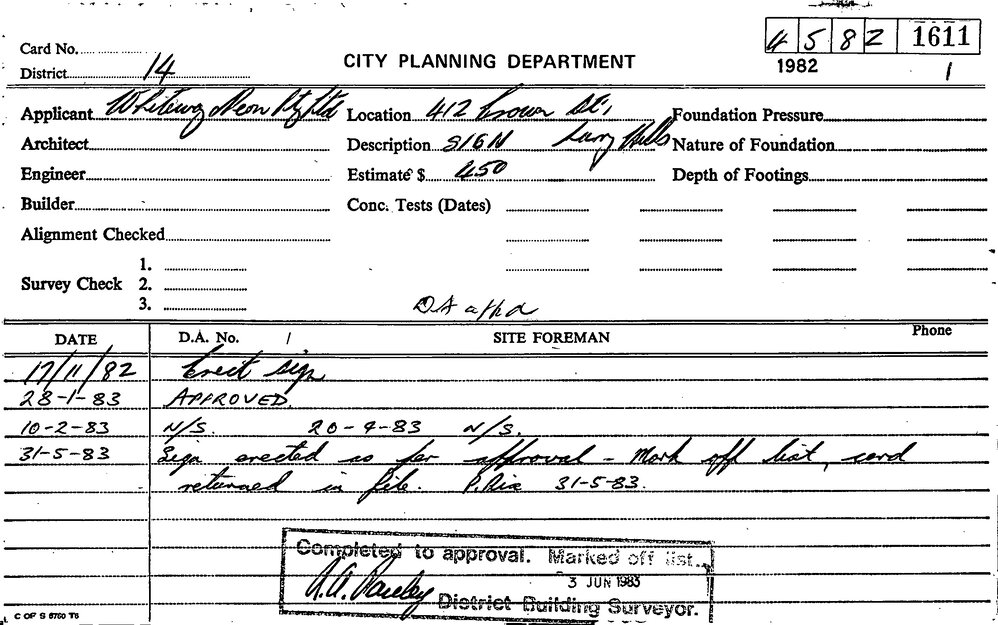 4 5 8 2 1611
Card No.
CITY PLANNING DEPARTMENT
1982 1
District 14
Applicant Whiteway Neon Pty Ltd Location 412 Crown St, Foundation Pressure
Architect Description SIGN Surry Hills Nature of Foundation
Engineer Estimate $ 450 Depth of Footings
Builder Conc. Tests (Dates)
Alignment Checked
1.
Survey Check 2.
3.
DA a/hd
DATE D.A. No. / SITE FOREMAN Phone
17/11/82 Erect sign
28-1-83 APPROVED.
10-2-83 N/S. 20-4-83 N/S.
31-5-83 Sign erected as per approval - Mark off list, card
returned in file. P. Rix 31-5-83.
Completed to approval. Marked off list.
3 JUN 1983
District Building Surveyor.
C OF S 8760 T6